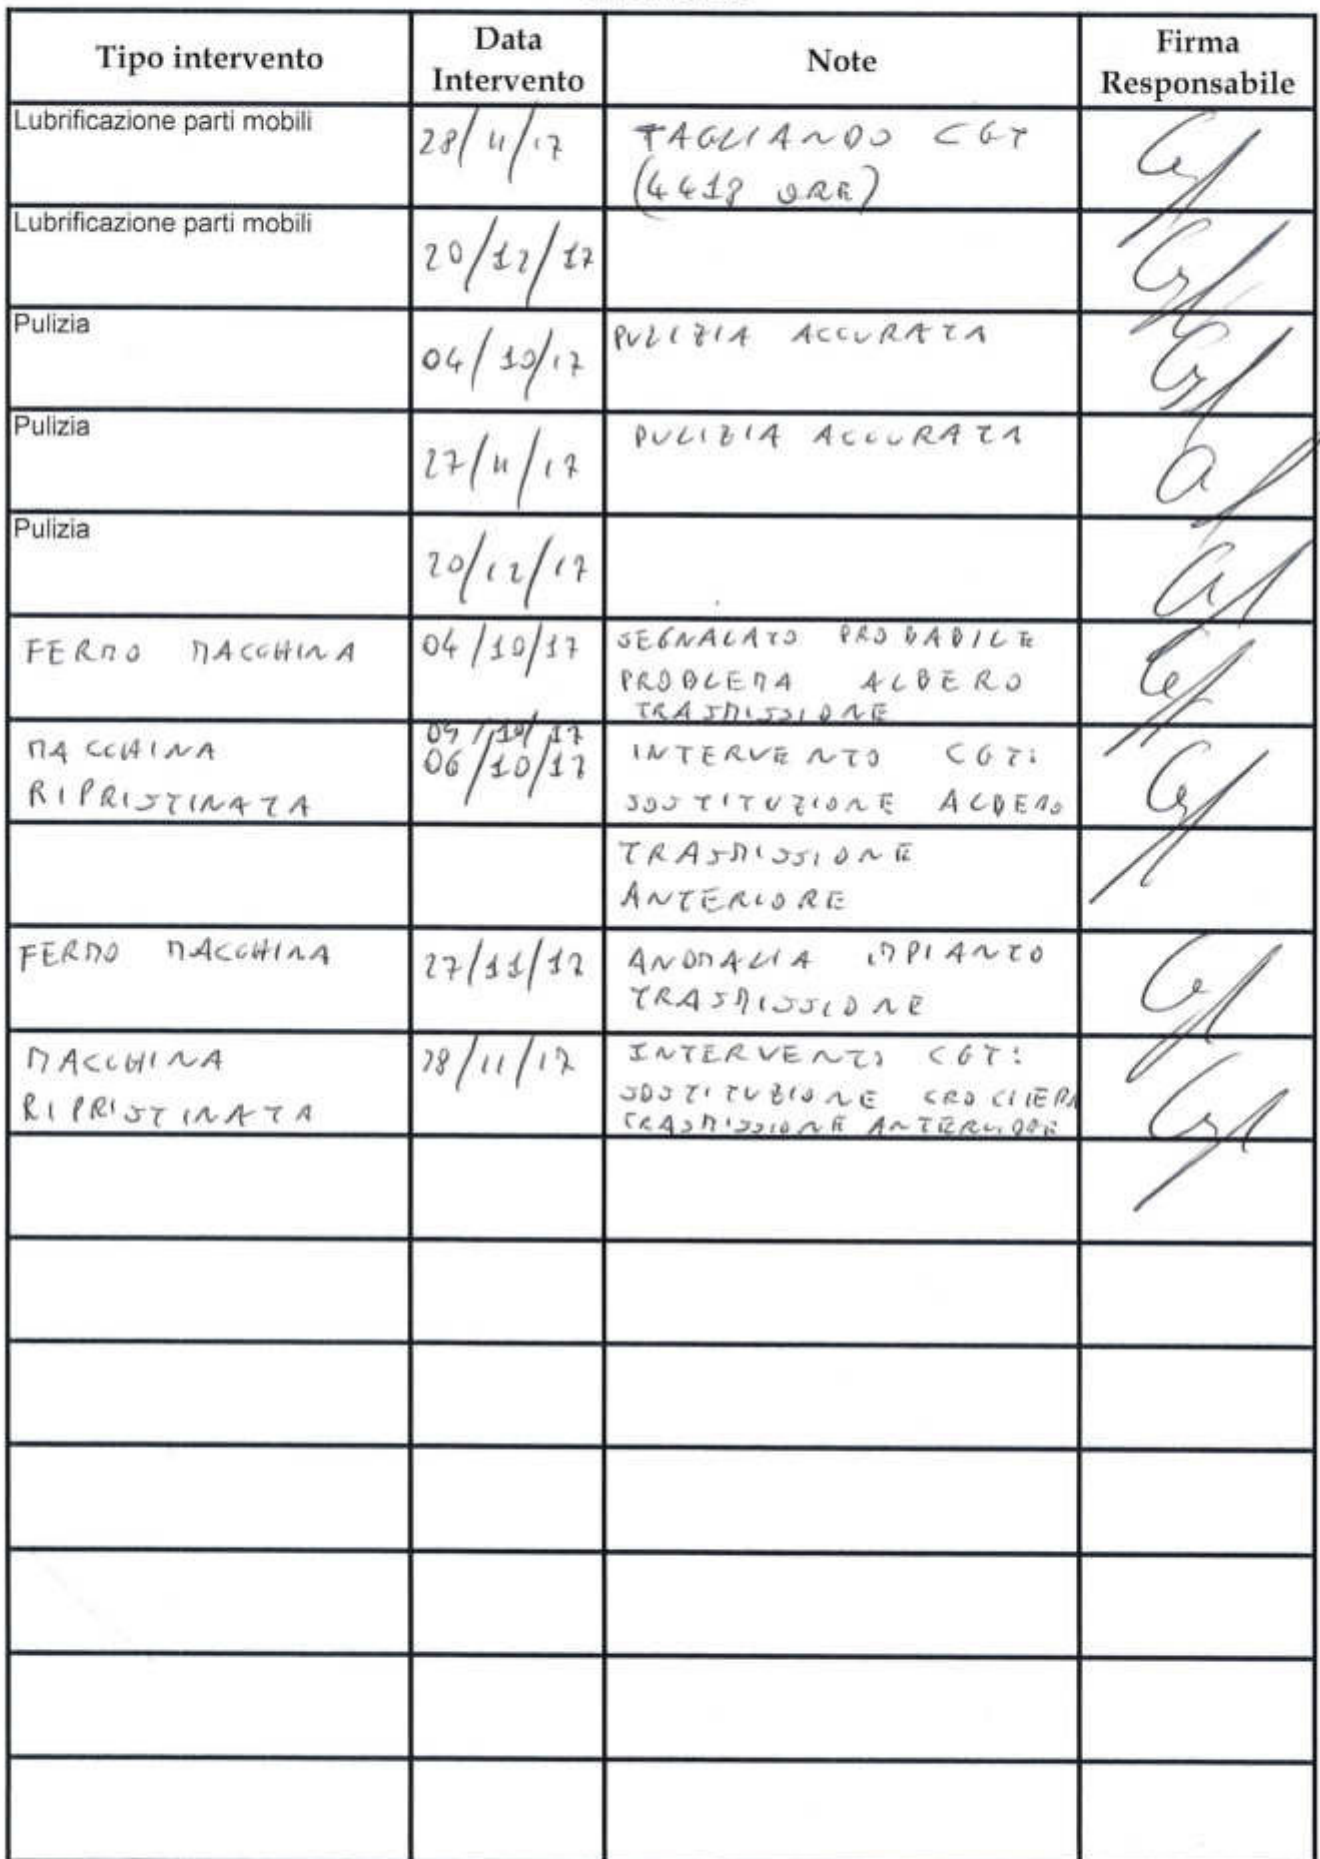 Tipo intervento Data Intervento Note Firma Responsabile
Lubrificazione parti mobili 28/11/17 TAGLIANDO CGT
(4418 ORE)
Lubrificazione parti mobili 20/12/17
Pulizia 04/10/17 PULIZIA ACCURATA
Pulizia 27/11/17 PULIZIA ACCURATA
Pulizia 20/12/17
FERMO MACCHINA 04/10/17 SEGNALATO PROBABILE
PROBLEMA ALBERO
TRASMISSIONE
MACCHINA 05/10/17 INTERVENTO CGT:
RIPRISTINATA 06/10/17 SOSTITUZIONE ALBERO
TRASMISSIONE
ANTERIORE
FERMO MACCHINA 27/11/17 ANOMALIA IMPIANTO
TRASMISSIONE
MACCHINA 28/11/17 INTERVENTO CGT:
RIPRISTINATA SOSTITUZIONE CROCIERA
TRASMISSIONE ANTERIORE